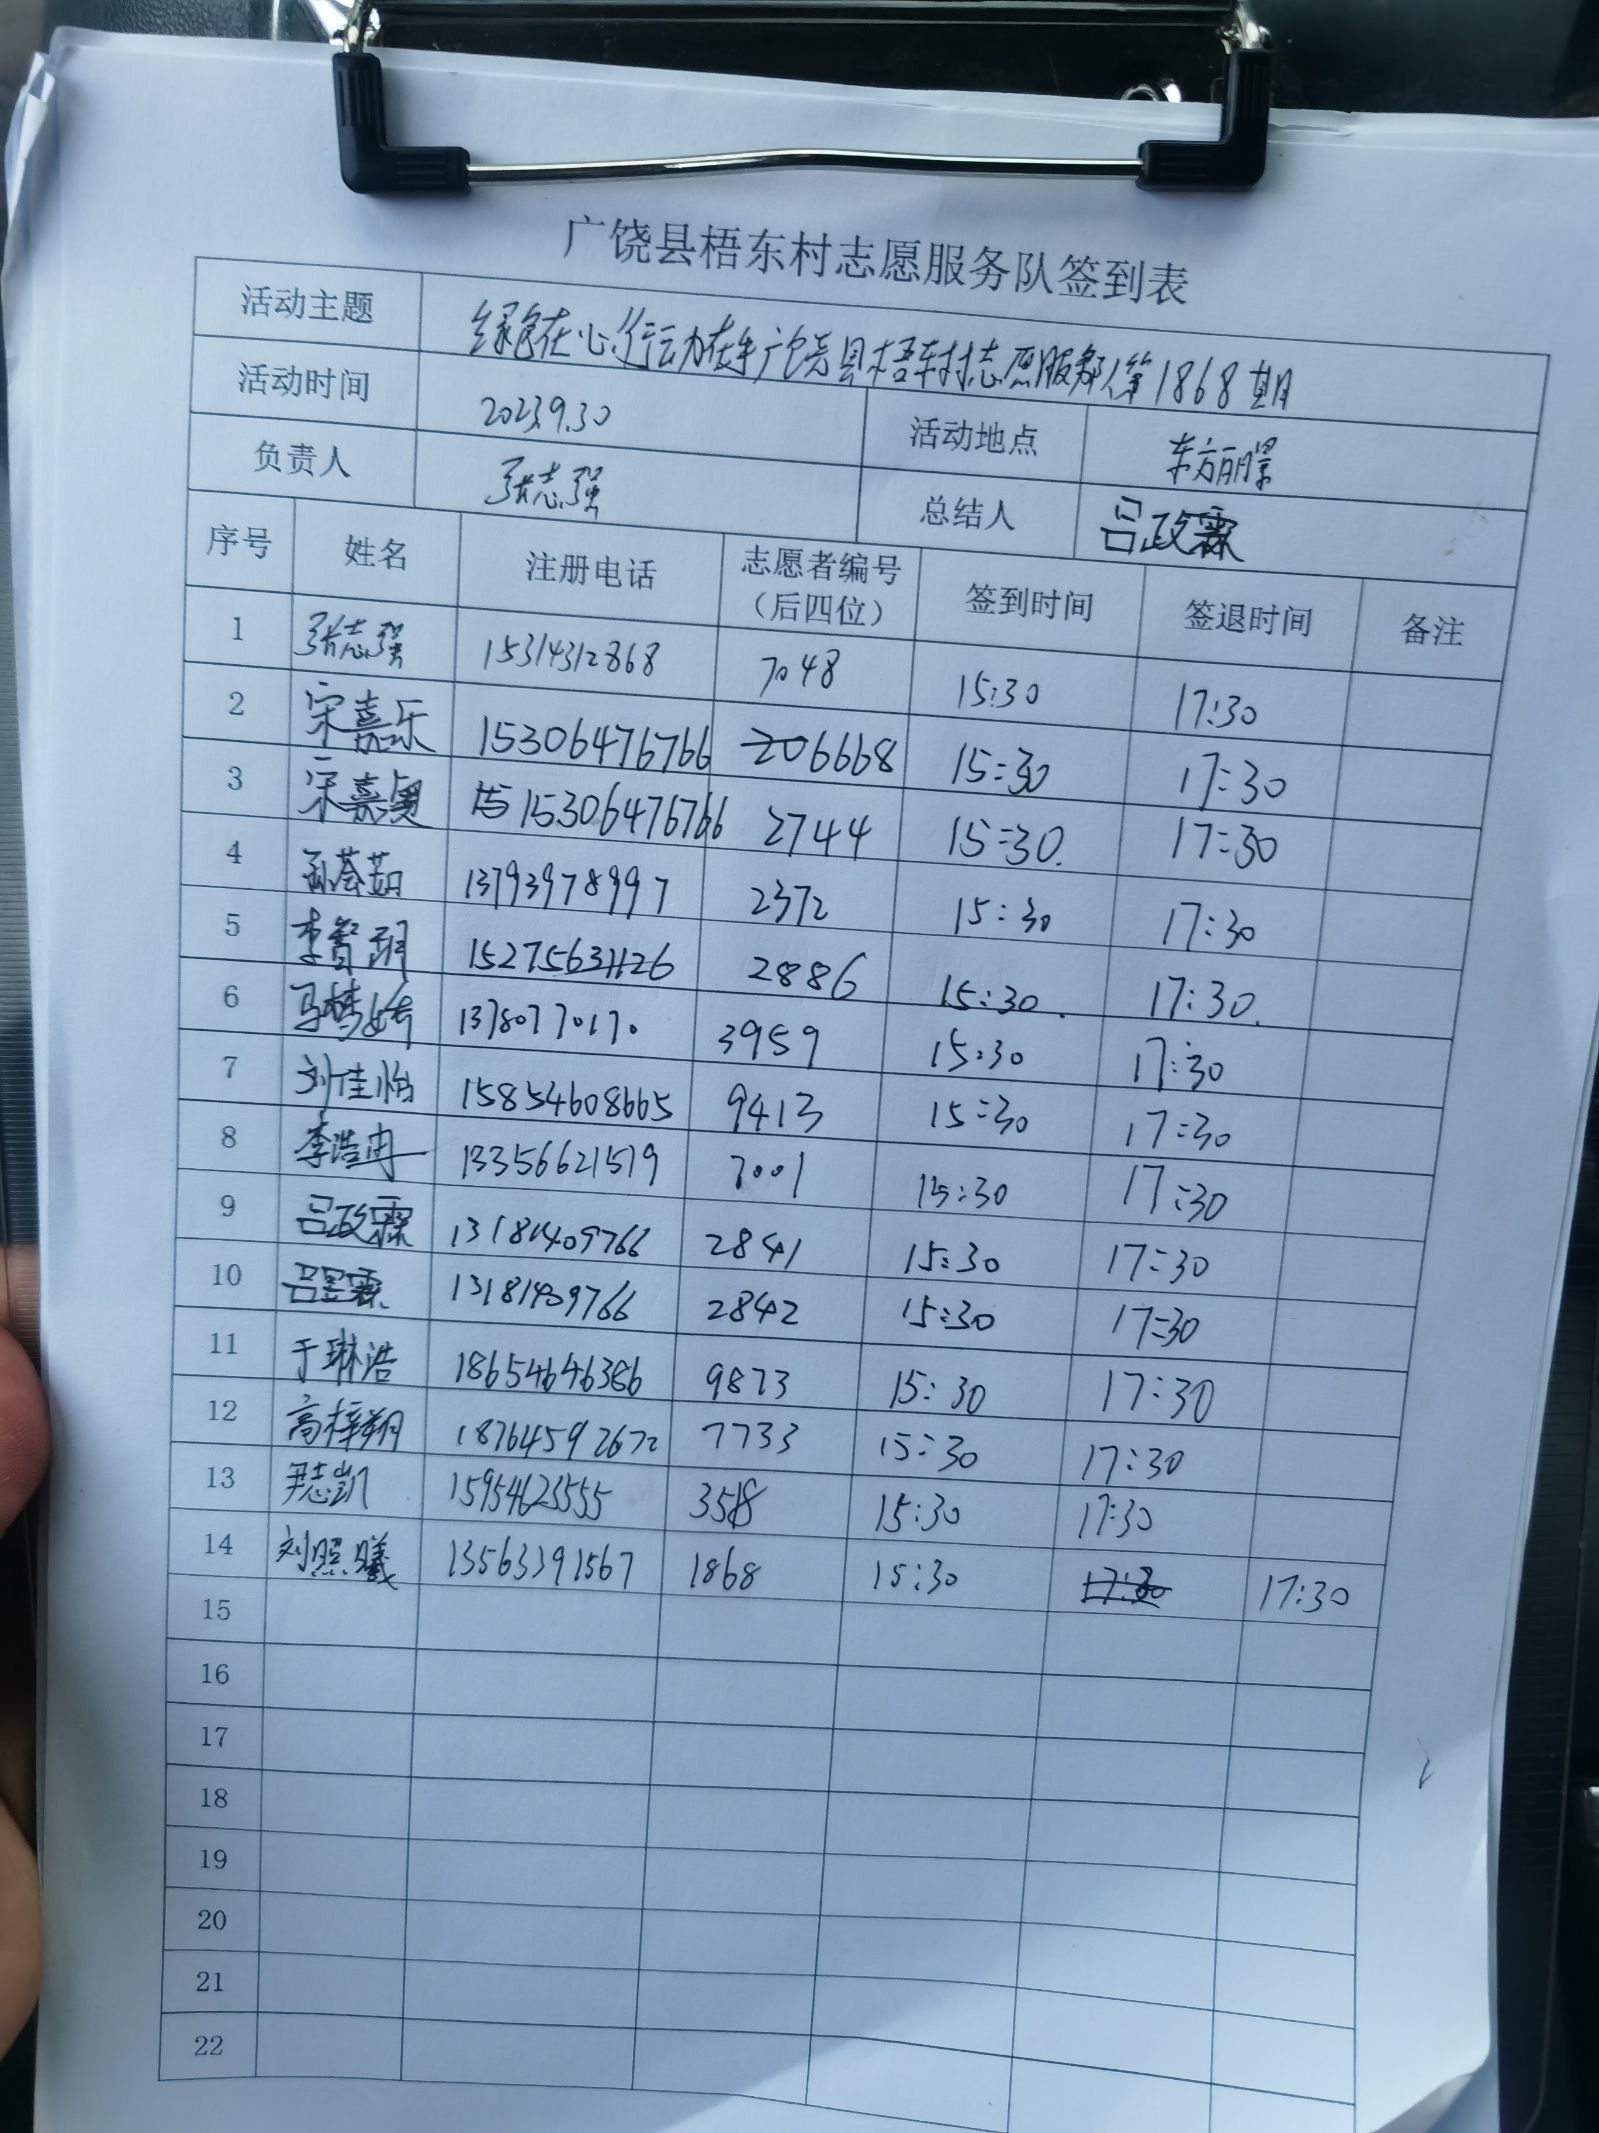 广饶县梧东村志愿服务队签到表
活动主题 绿色在心 行动在手 广饶县梧东村志愿服务队第1868期
活动时间 2023.9.30 活动地点 东方丽景
负责人 张志强 总结人 吕政霖
序号 姓名 注册电话 志愿者编号（后四位） 签到时间 签退时间 备注
1 张志强 15314312868 7048 15:30 17:30
2 宋嘉乐 15306476766 6668 15:30 17:30
3 宋嘉奥 15306476766 2744 15:30 17:30
4 孙荟茹 13793978997 2372 15:30 17:30
5 李智玥 15275631126 2886 15:30 17:30
6 马梦婷 13780770170 3959 15:30 17:30
7 刘佳怡 15854608665 9413 15:30 17:30
8 李浩冉 13356621519 7001 15:30 17:30
9 吕政霖 13181409766 2841 15:30 17:30
10 吕昱霖 13181409766 2842 15:30 17:30
11 于琳浩 18654646386 9873 15:30 17:30
12 高梓翔 18764592672 7733 15:30 17:30
13 尹志凯 15954623555 3518 15:30 17:30
14 刘照曦 13563391567 1868 15:30 17:30 17:30
15
16
17
18
19
20
21
22